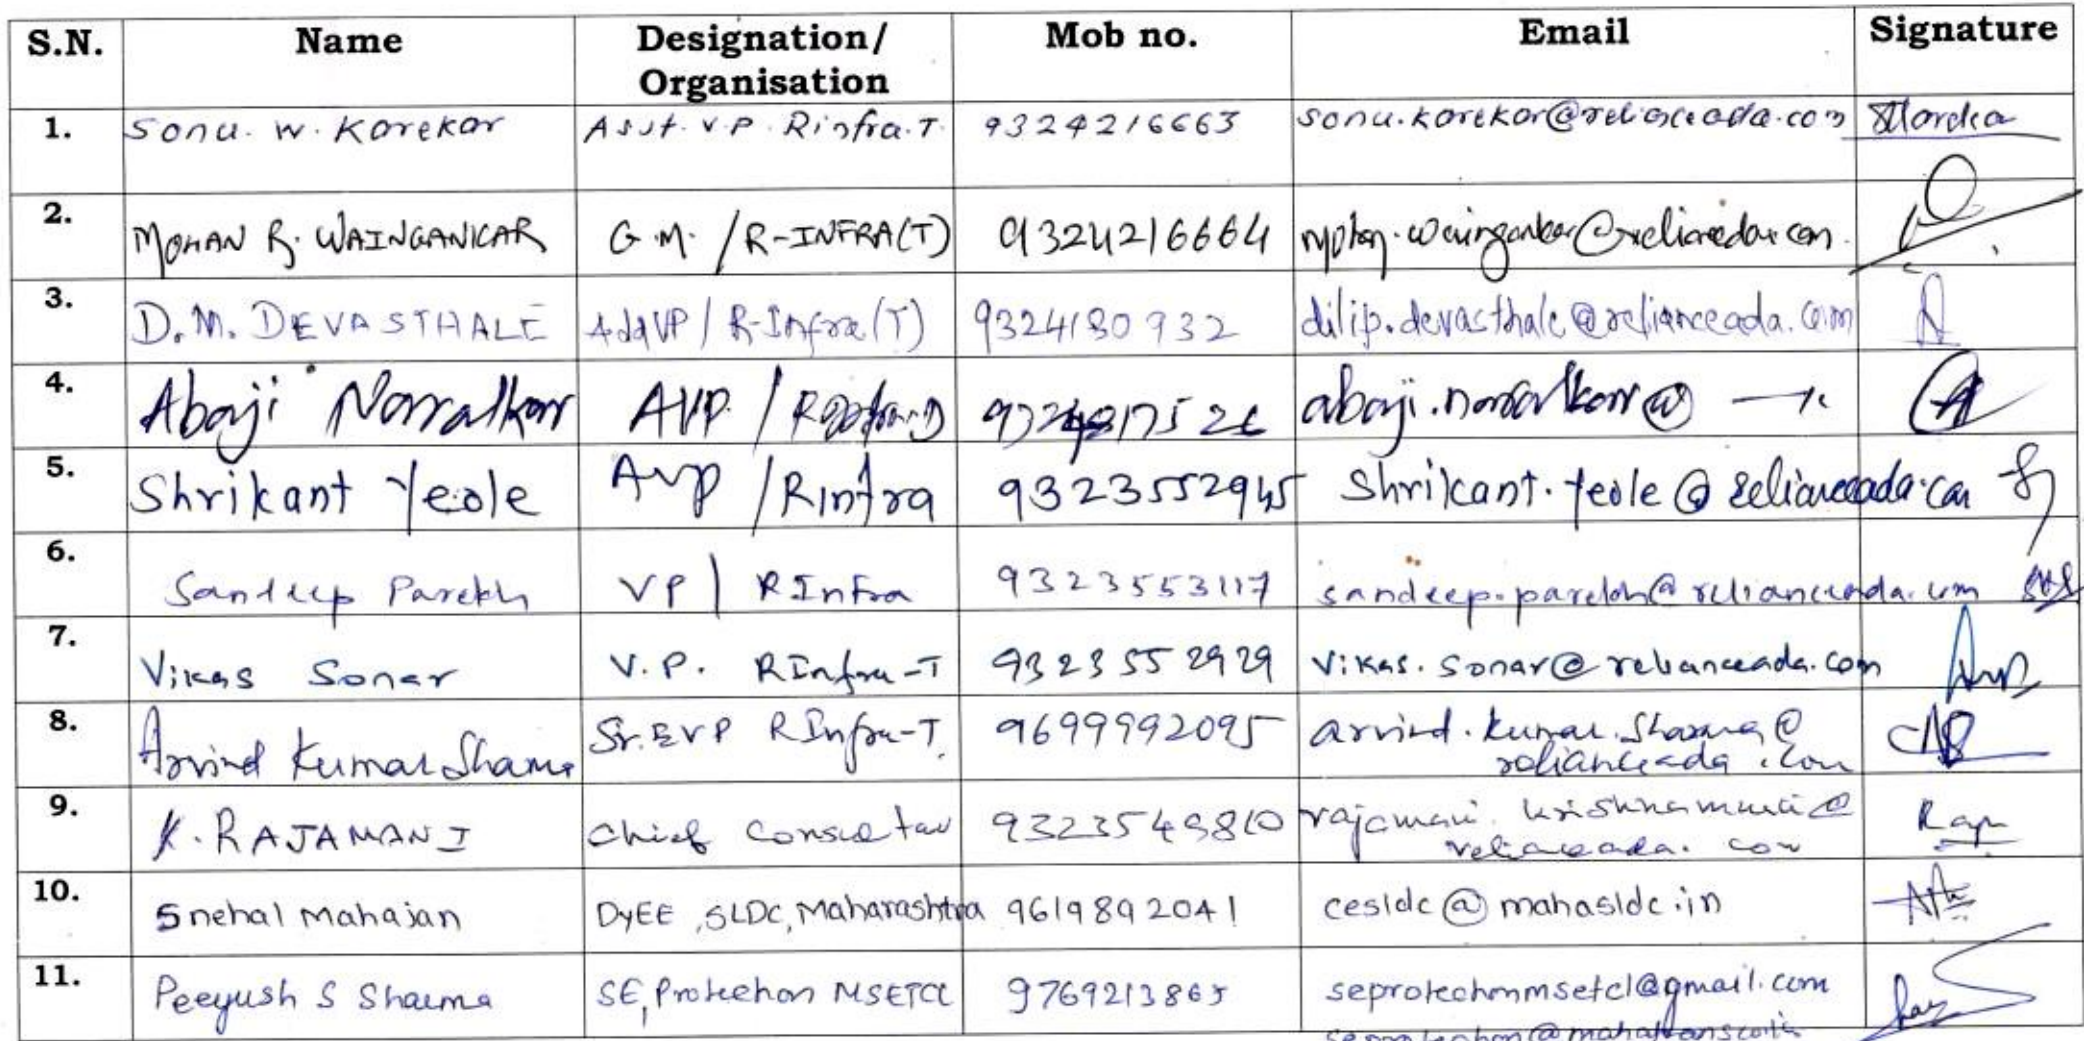 S.N. Name Designation/ Organisation Mob no. Email Signature
1. Sonu. W. Korekar Asst. V.P. Rinfra.T. 9324216663 sonu.korekar@relianceada.com
2. MOHAN R. WAINGANKAR G.M. / R-INFRA(T) 9324216664 mohan.waingankar@relianceada.com
3. D.M. DEVASTHALE AddVP / R-Infra(T) 9324180932 dilip.devasthale@relianceada.com
4. Abaji Narralkar AVP / abaji.narralkar@
5. Shrikant Yeole Avp / Rinfra 9323552945 Shrikant.Yeole@relianceada.com
6. Sandeep Parekh VP | RInfra 9323553117 sandeep.parekh@relianceada.com
7. Vikas Sonar V.P. RInfra-T 9323552929 Vikas.Sonar@relianceada.com
8. Arvind Kumar Sharma Sr.EVP RInfra-T. 9699992095 arvind.kumar.Sharma@
relianceada.com
9. K. RAJAMANI Chief Consultant rajamani.krishnamurti@
relianceada.com
10. Snehal Mahajan DyEE, SLDC, Maharashtra 9619892041 cesldc@mahasldc.in
11. Peeyush S Sharma SE, Protection MSETCL 9769213865 seprotectionmsetcl@gmail.com